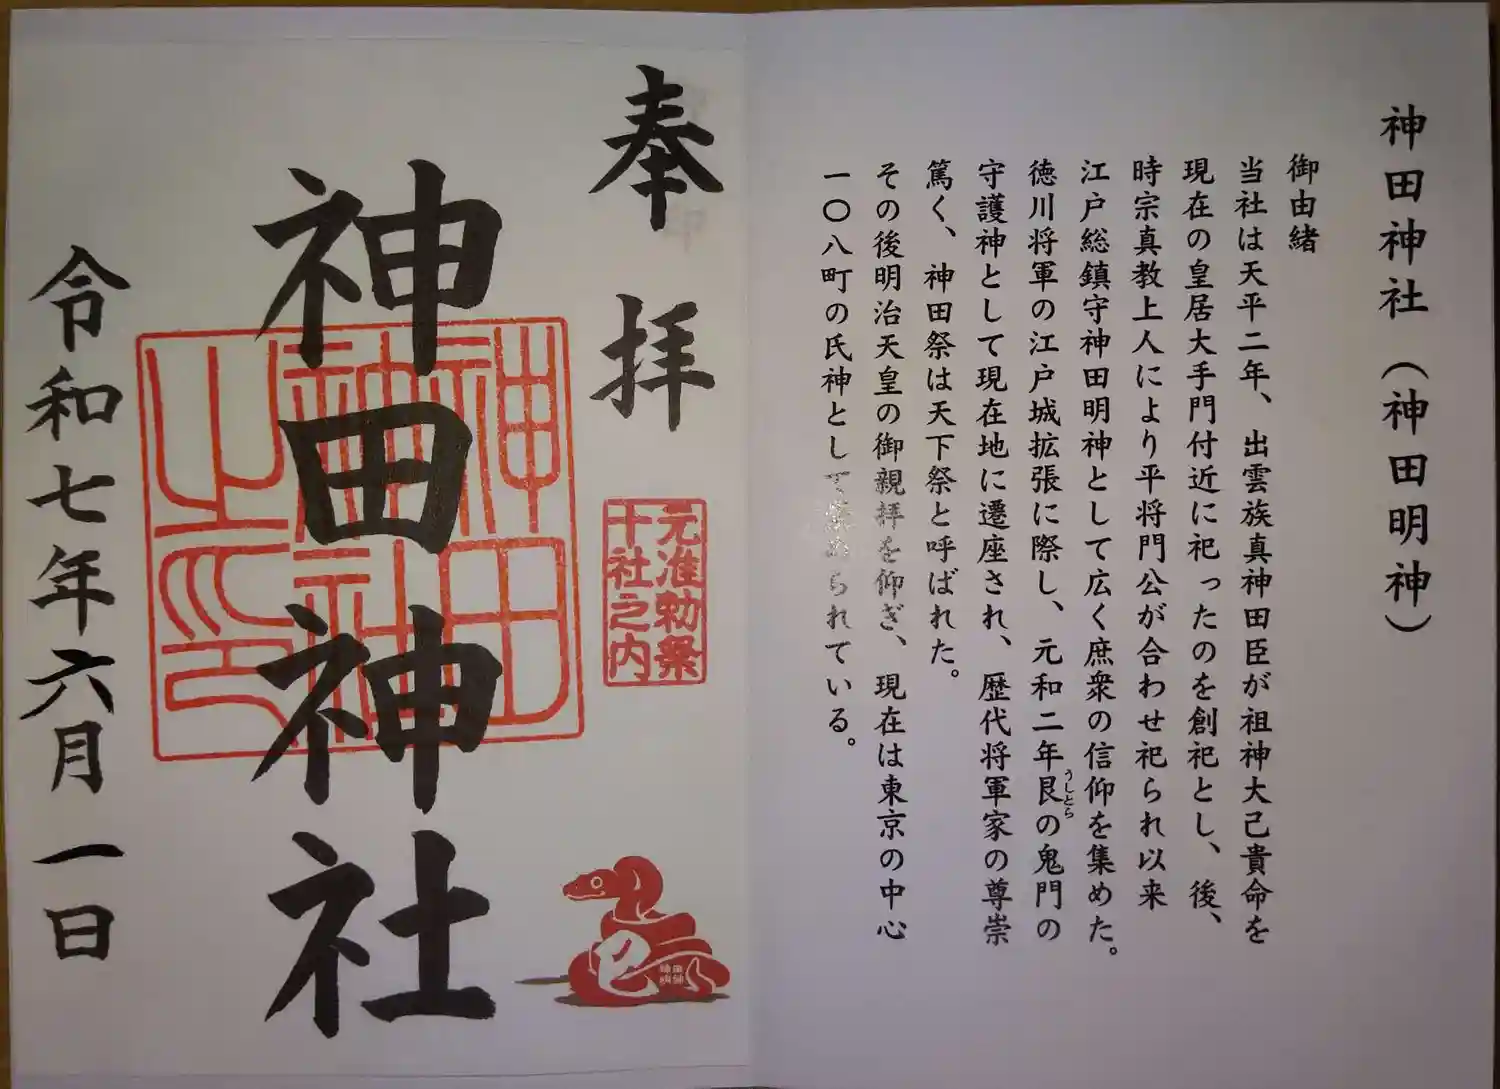 神田神社（神田明神）
御由緒
当社は天平二年、出雲族真神田臣が祖神大己貴命を
現在の皇居大手門付近に祀ったのを創祀とし、後、
時宗真教上人により平将門公が合わせ祀られ以来
江戸総鎮守神田明神として広く庶衆の信仰を集めた。
徳川将軍の江戸城拡張に際し、元和二年艮の鬼門の
うしとら
守護神として現在地に遷座され、歴代将軍家の尊崇
篤く、神田祭は天下祭と呼ばれた。
その後明治天皇の御親拝を仰ぎ、現在は東京の中心
一〇八町の氏神として崇められている。
奉拝
元准勅祭
十社之内
神田神社
神田
神社
之印
令和七年六月一日
巳